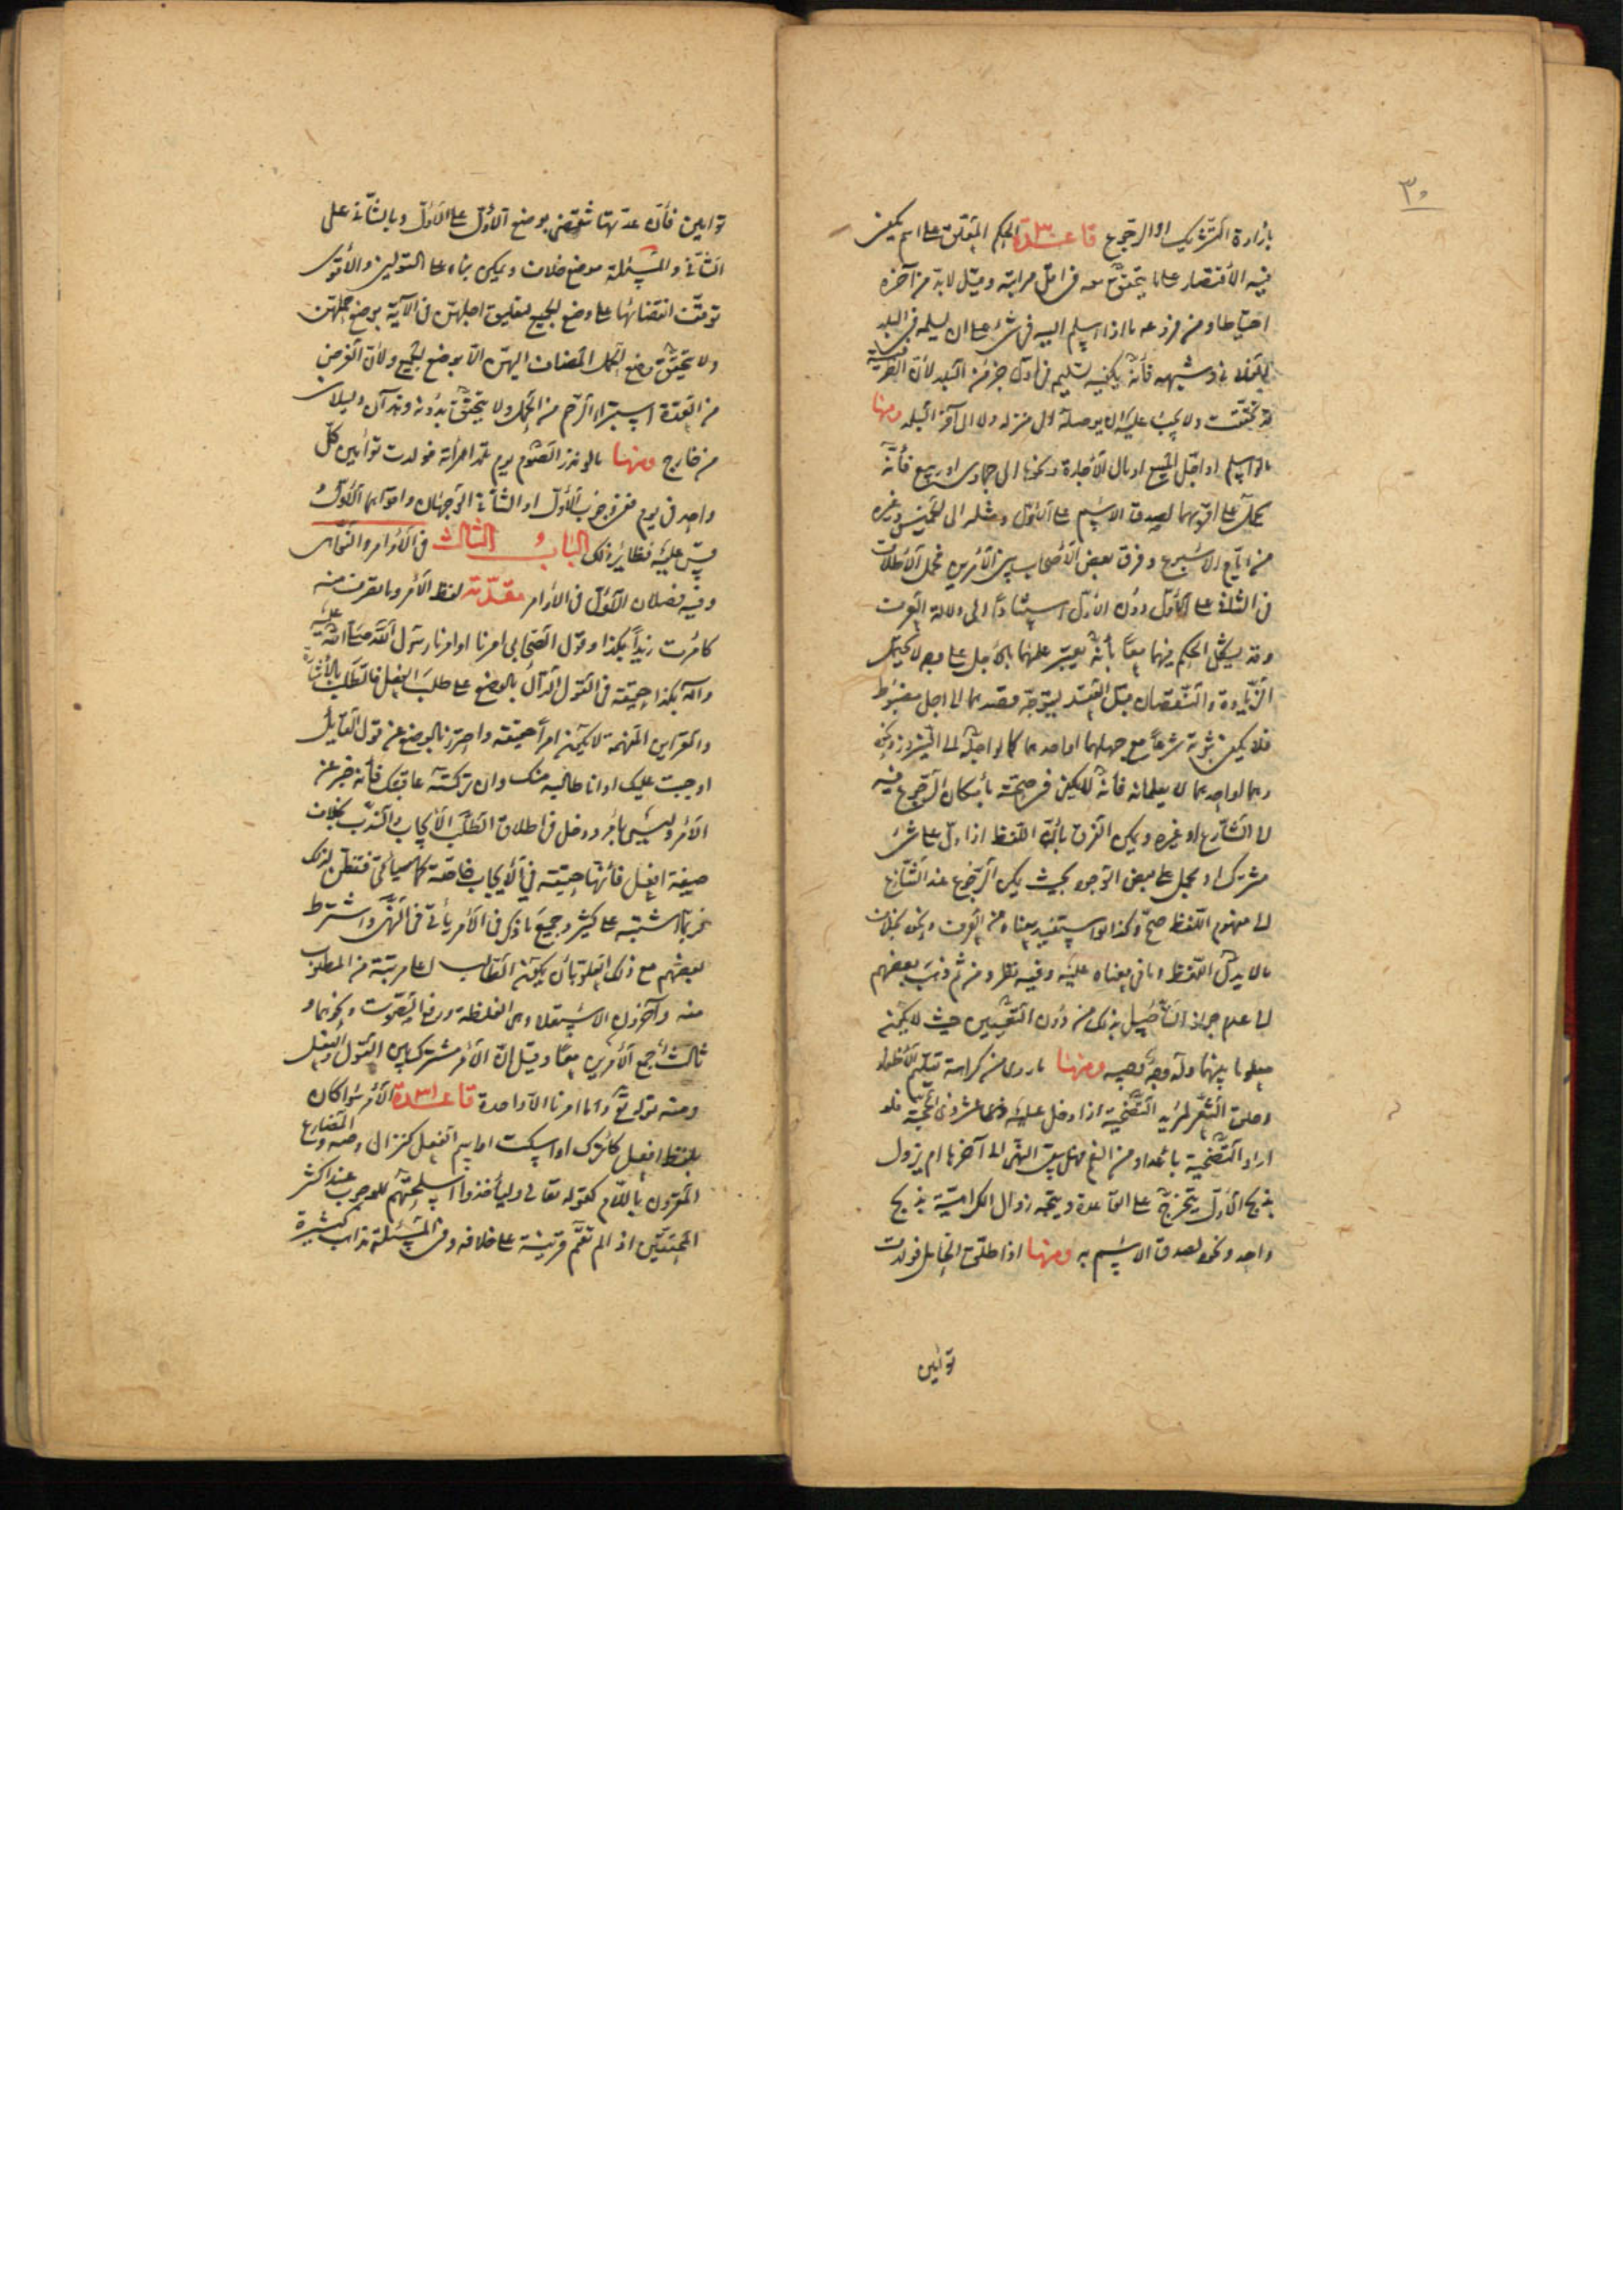 ٣٠
بارادة التشريك او الرجوع قاعدة ٣٠ الحكم المعلق على اسم يكفى
فيه الاقتصار على ما يتحقق معه فى اقل مراتبه وقيل لابد من آخره
احتياطا ومن فروعه ما اذا اسلم اليه فى شئ على ان يسلمه فى البلد
الفلانى وشبهه فأنه يكفيه تسليمه فى اول جزء من البلد لأن الظرفية
قد تحققت ولا يجب عليه ان يوصله الى منزله ولا الى آخر البلد ومنها
ما لو اسلم او اجل المبيع او مال الأجارة ونحوها الى جمادى او ربيع فأنه
يحمل على اقربهما لصدق الاسم على الأول ومثله الى الخميس وغيره
من ايام الاسبوع وفرق بعض الأصحاب بين الأمرين فحمل الأطلاق
فى الثانى على الأول دون الأول استنادا الى دلالة العرف
وقد يشكل الحكم فيهما معا بأنه يعتبر علمهما بالأجل على وجه لا يحتمل
الزيادة والنقصان قبل العقد ليتوجه قصدهما الى اجل مضبوط
فلا يكفى ثبوته شرعا مع جهلهما او احدهما كما لو اجلا الى النيروز ونحوه
وهما او احدهما لا يعلمانه فأنه لا يكفى فى صحته بأمكان الرجوع فيه
الى الشارع او غيره ويمكن الفرق بأن اللفظ اذا دل على شئ
مشترك او محمل على بعض الوجوه بحيث يمكن الرجوع عند التنازع
الى مفهوم اللفظ صح وكذا لو استفيد معناه من العرف ونحوه بخلاف
ما لا يدل اللفظ او ما فى معناه عليه وفيه نظر ومن ثم ذهب بعضهم
الى عدم جواز التأجيل بذلك من دون التعيين حيث لا يكون
معلوما بينهما وله وجه وجيه ومنها ما روى من كراهة تقليم الأظفار
وحلق الشعر لمريد التضحية اذا دخل عليه عشر ذى الحجة فلو
اراد التضحية بأعداد من النعم فهل يبقى النهى الى آخرها ام يزول
بذبح الأول يتخرج على القاعدة ويتجه زوال الكراهية بذبح
واحد ونحوه لصدق الاسم به ومنها اذا طلق الحامل فولدت
توأمين
توأمين فأن عدتها تنقضى بوضع الأول على الأول وبالثانى على
الثانى والمسئلة موضع خلاف ويمكن بناءه على القولين والاقوى
توقف انقضائها على وضع الجميع لتعليق اجلهن فى الآية بوضع حملهن
ولا يتحقق وضع الحمل المضاف اليهن الا بوضع الجميع ولأن الغرض
من العدة استبراء الرحم من الحمل ولا يتحقق بدونه وهذان دليلان
من خارج ومنها ما لو نذر الصوم يوم تلد امرأته فولدت توأمين كل
واحد فى يوم ففى وجوب الأول او الثانى الوجهان واقواهما الأول و
قس عليه نظائر ذلك الباب الثالث فى الأوامر والنواهى
وفيه فصلان الأول فى الأوامر مقدمة لفظ الأمر وما تصرف منه
كأمرت زيدا بكذا وقول الصحابى امرنا او امرنا رسول الله صلى الله عليه
وآله بكذا حقيقة فى القول الدال بالوضع على طلب الفعل فالطلب بالأشارة
والقراين المفهمة لا يكون امرا حقيقة واحترز بالوضع عن قول القايل
اوجبت عليك او انا طالبه منك وان تركته عاقبتك فأنه خبر عن
الأمر وليس بأمر ودخل فى اطلاق الطلب الأيجاب والندب بخلاف
صيغة افعل فأنها حقيقة فى الأيجاب خاصة كما سيأتى فتفطن لذلك
فربما اشتبه على كثير وجميع ما ذكر فى الأمر يأتى فى النهى واشترط
بعضهم مع ذلك العلو بأن يكون الطالب اعلى مرتبة من المطلوب
منه وآخرون الاستعلاء وهى الغلظة ورفع الصوت ونحوهما و
ثالث جمع الأمرين معا وقيل ان الأمر مشترك بين القول والفعل
ومنه قوله تع وما امرنا الا واحدة قاعدة ٣١ الأمر سواء كان
بلفظ افعل كأترك او اسكت او اسم الفعل كنزال وصه والمضارع
المقرون باللام كقوله تعالى وليأخذوا اسلحتهم للوجوب عند اكثر
المحققين اذا لم تقم قرينة على خلافه وفى المسئلة مذاهب كثيرة